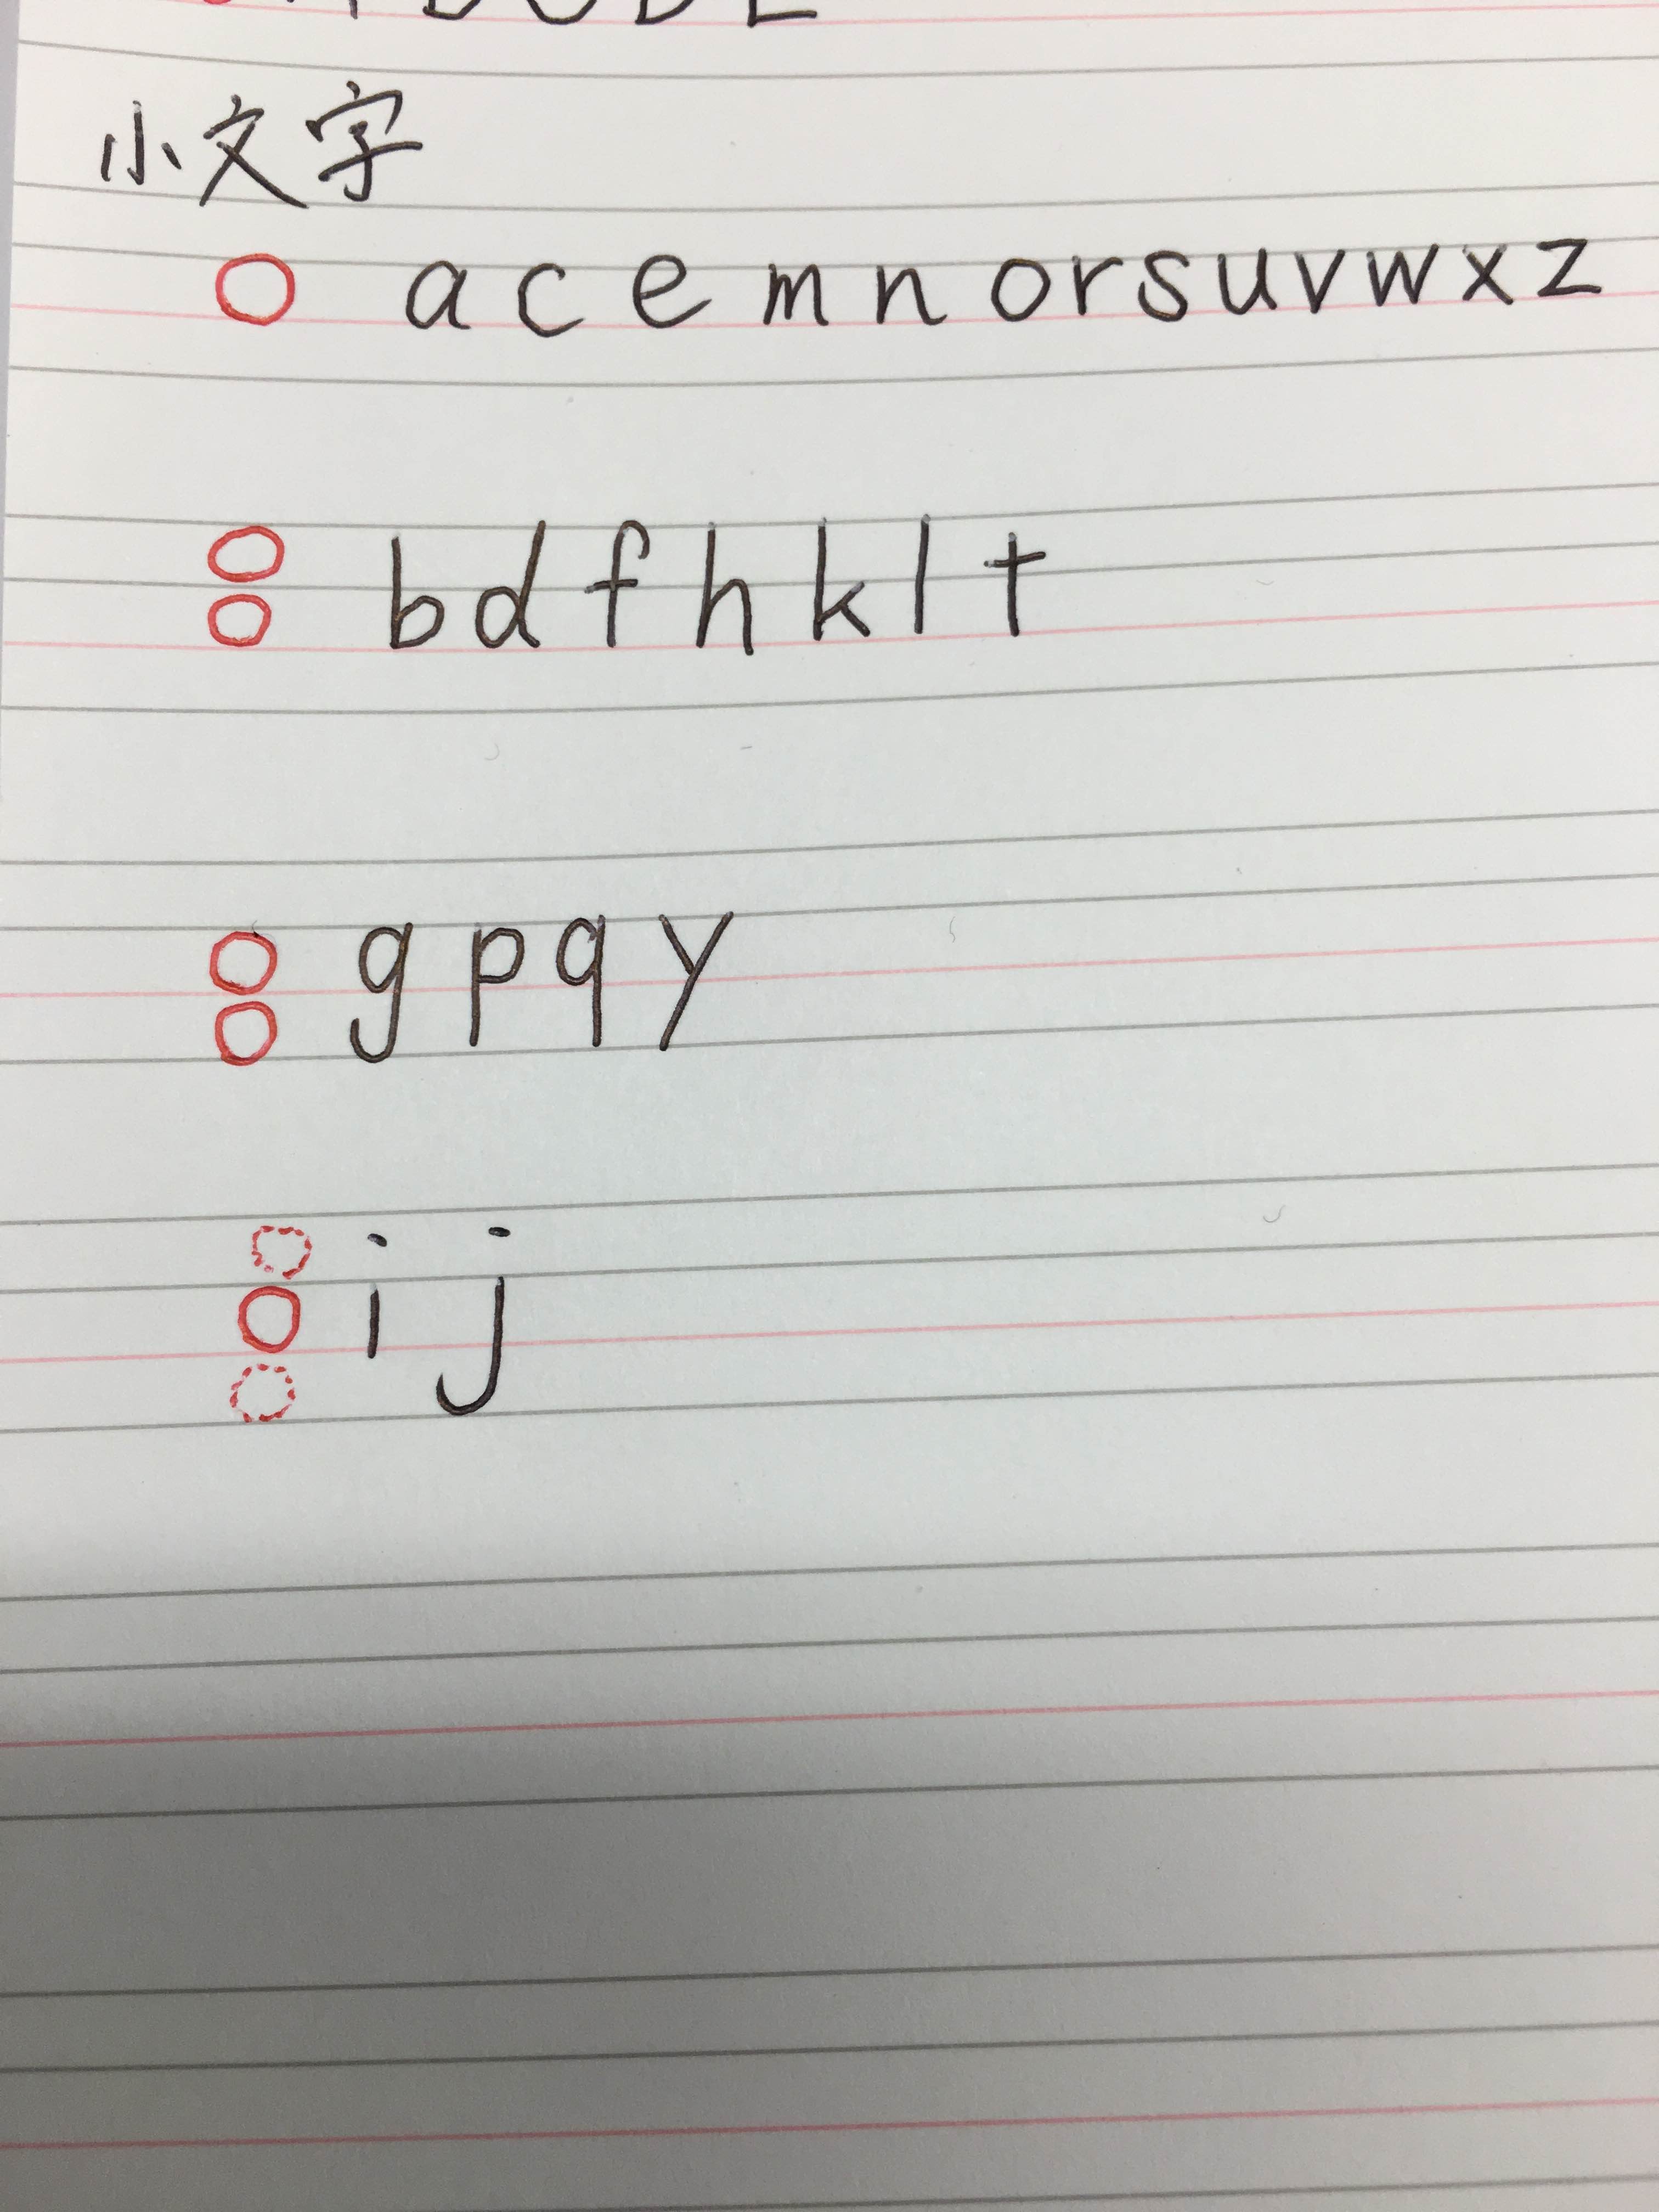 小文字
a c e m n o r s u v w x z
b d f h k l t
g p q y
i j